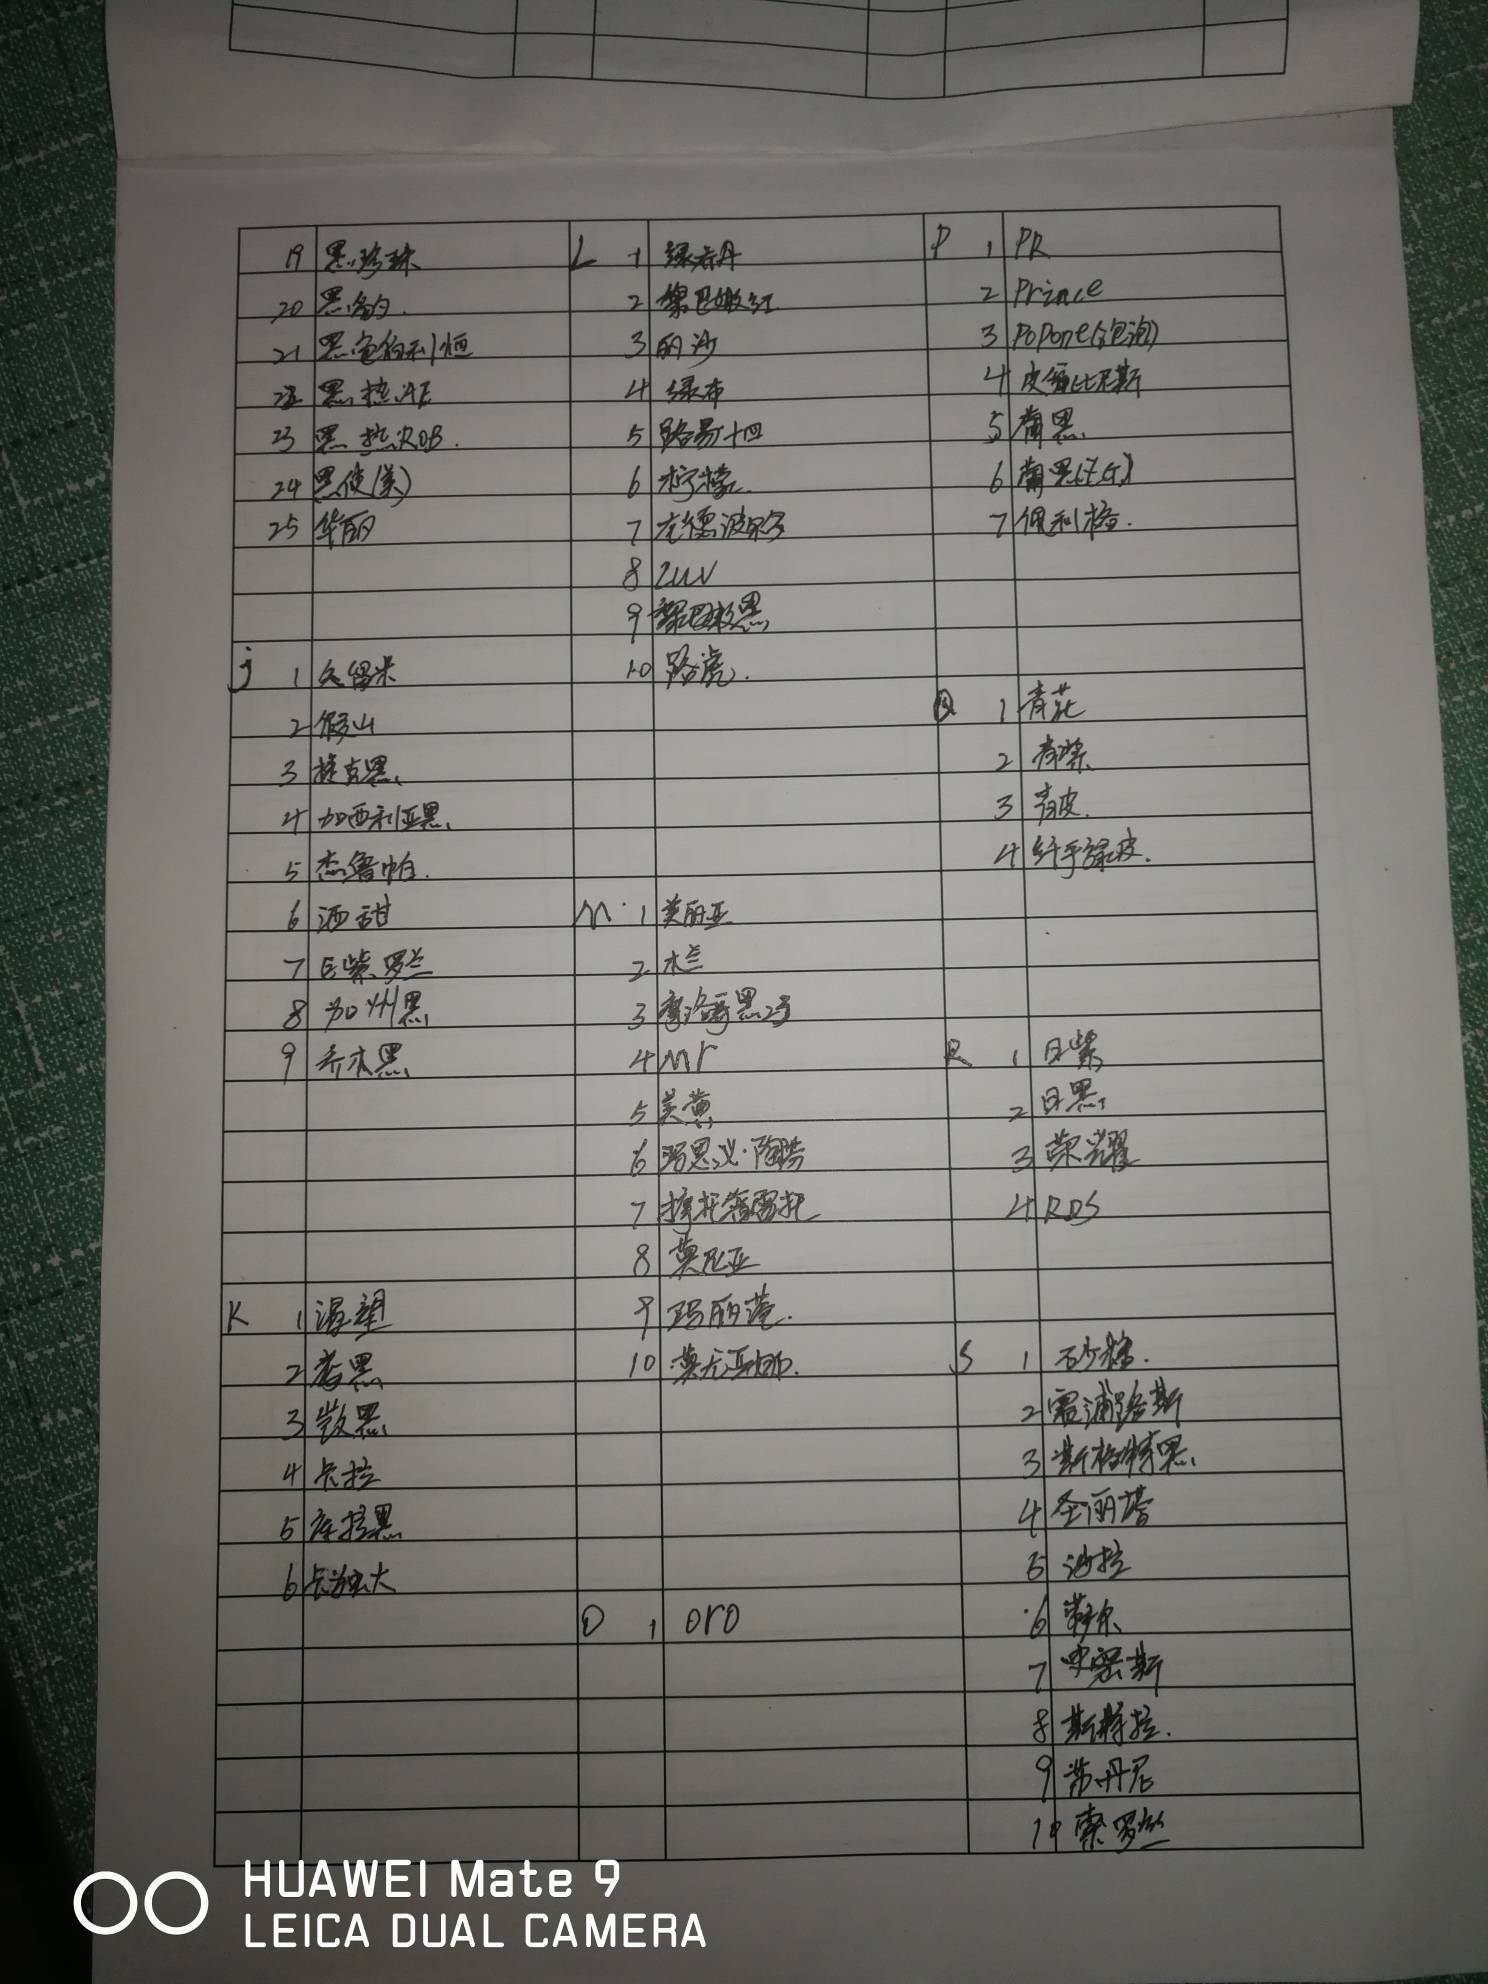 19 黑珍珠
20 黑豹
21
22 黑热JE
23 黑热RDB.
24 黑使(美)
25 华丽
j 1 久留米
2 假山
3 捷克黑
4 加西利亚黑
5 杰鲁帕.
6 酒甜
7 巨紫罗兰
8 加州黑
9 乔木黑
K 1 渴望
2 考黑
3
4 卡拉
5 库拉黑
6
L 1
2
3 丽沙
4 绿布
5 路易十四
6 柠檬.
7
8 Luv
9
10 路虎.
M 1 美丽亚
2 木兰
3 摩洛哥黑2号
4 Mr
5 美黄
6
7
8 莫尼亚
9 玛丽莲.
10
O 1 oro
P 1 PR
2 Prince
3 Popone(泡泡)
4
5 蒲黑
6
7 佩利格.
Q 1 青花
2 青紫
3 青皮.
4 纤手绿皮.
R 1 日紫
2 日黑
3 荣耀
4 RDS
S 1 砂糖.
2 塞浦路斯
3 斯格特黑
4 圣丽塔
5 沙拉
6
7 史密斯
8 斯特拉.
9 苏丹尼
10 索罗丝
HUAWEI Mate 9
LEICA DUAL CAMERA